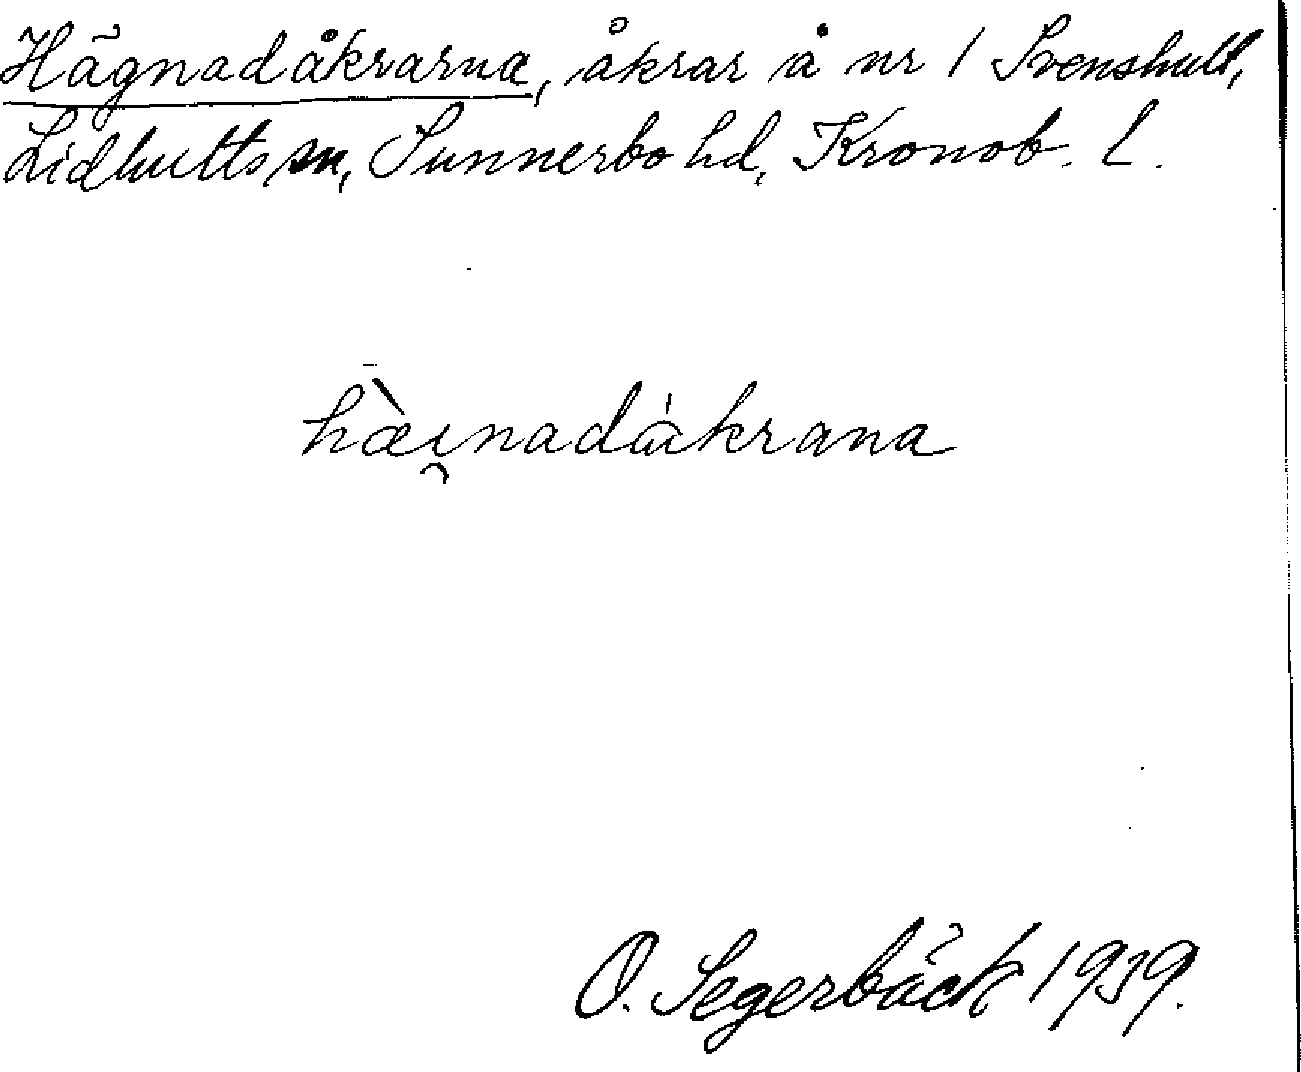 Hägnadåkrarna, åkrar å nr 1 Svenshult,
Lidhults sn, Sunnerbo hd, Kronob. l.
hæ̀ɩ̯nadåkrana
O. Segerbäck 1939.